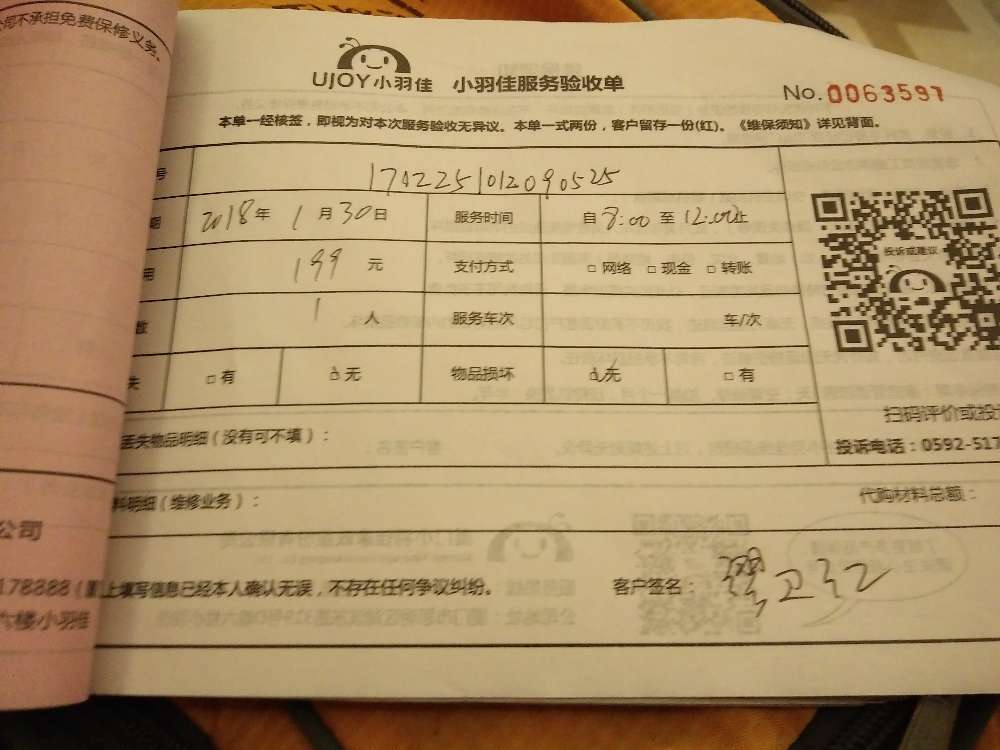 公司不承担免费保修义务。
UJOY小羽佳 小羽佳服务验收单
No.0063597
本单一经核签，即视为对本次服务验收无异议。本单一式两份，客户留存一份(红)。《维保须知》详见背面。
号 1742251012090525
期 2018年 1月30日 服务时间 自 8:00 至 12:00止
用 199 元 支付方式 □ 网络 □ 现金 □ 转账
数 1 人 服务车次 车/次
失 □ 有 □ 无 物品损坏 □ 无 □ 有
投诉或建议
扫码评价或投
丢失物品明细（没有可不填）：
投诉电话：0592-517
料明细（维修业务）：
代购材料总额：
公司
178888（厦
上填写信息已经本人确认无误，不存在任何争议纠纷。 客户签名：
六楼小羽佳